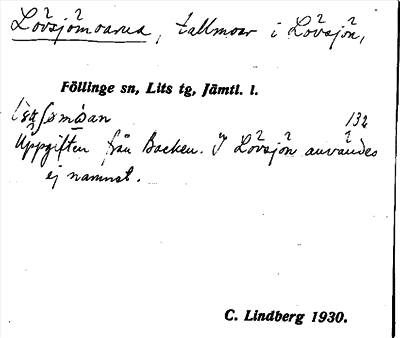 Lövsjömoarna, tallmoar i Lövsjön,
Föllinge sn, Lits tg, Jämtl. l.
132
Uppgiften från Backen. I Lövsjön användes
ej namnet.
C. Lindberg 1930.